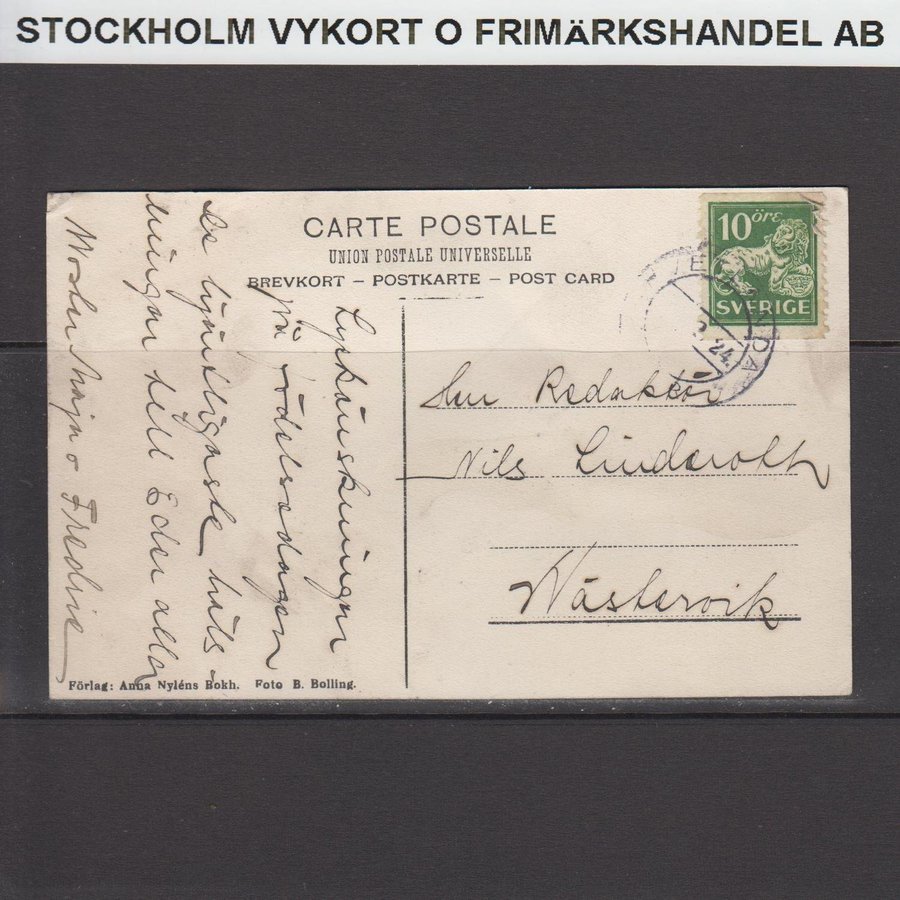 STOCKHOLM VYKORT O FRIMÄRKSHANDEL AB
CARTE POSTALE
UNION POSTALE UNIVERSELLE
BREVKORT – POSTKARTE – POST CARD
10 öre
SVERIGE
24
Lyckönskningar
på födelsedagen
de hjärtligaste häls-
ningar till Eder alla
Moster Maja o Fredrik
Herr Redaktör
Nils Linderoth
Wästervik
Förlag: Anna Nyléns Bokh. Foto B. Bolling.